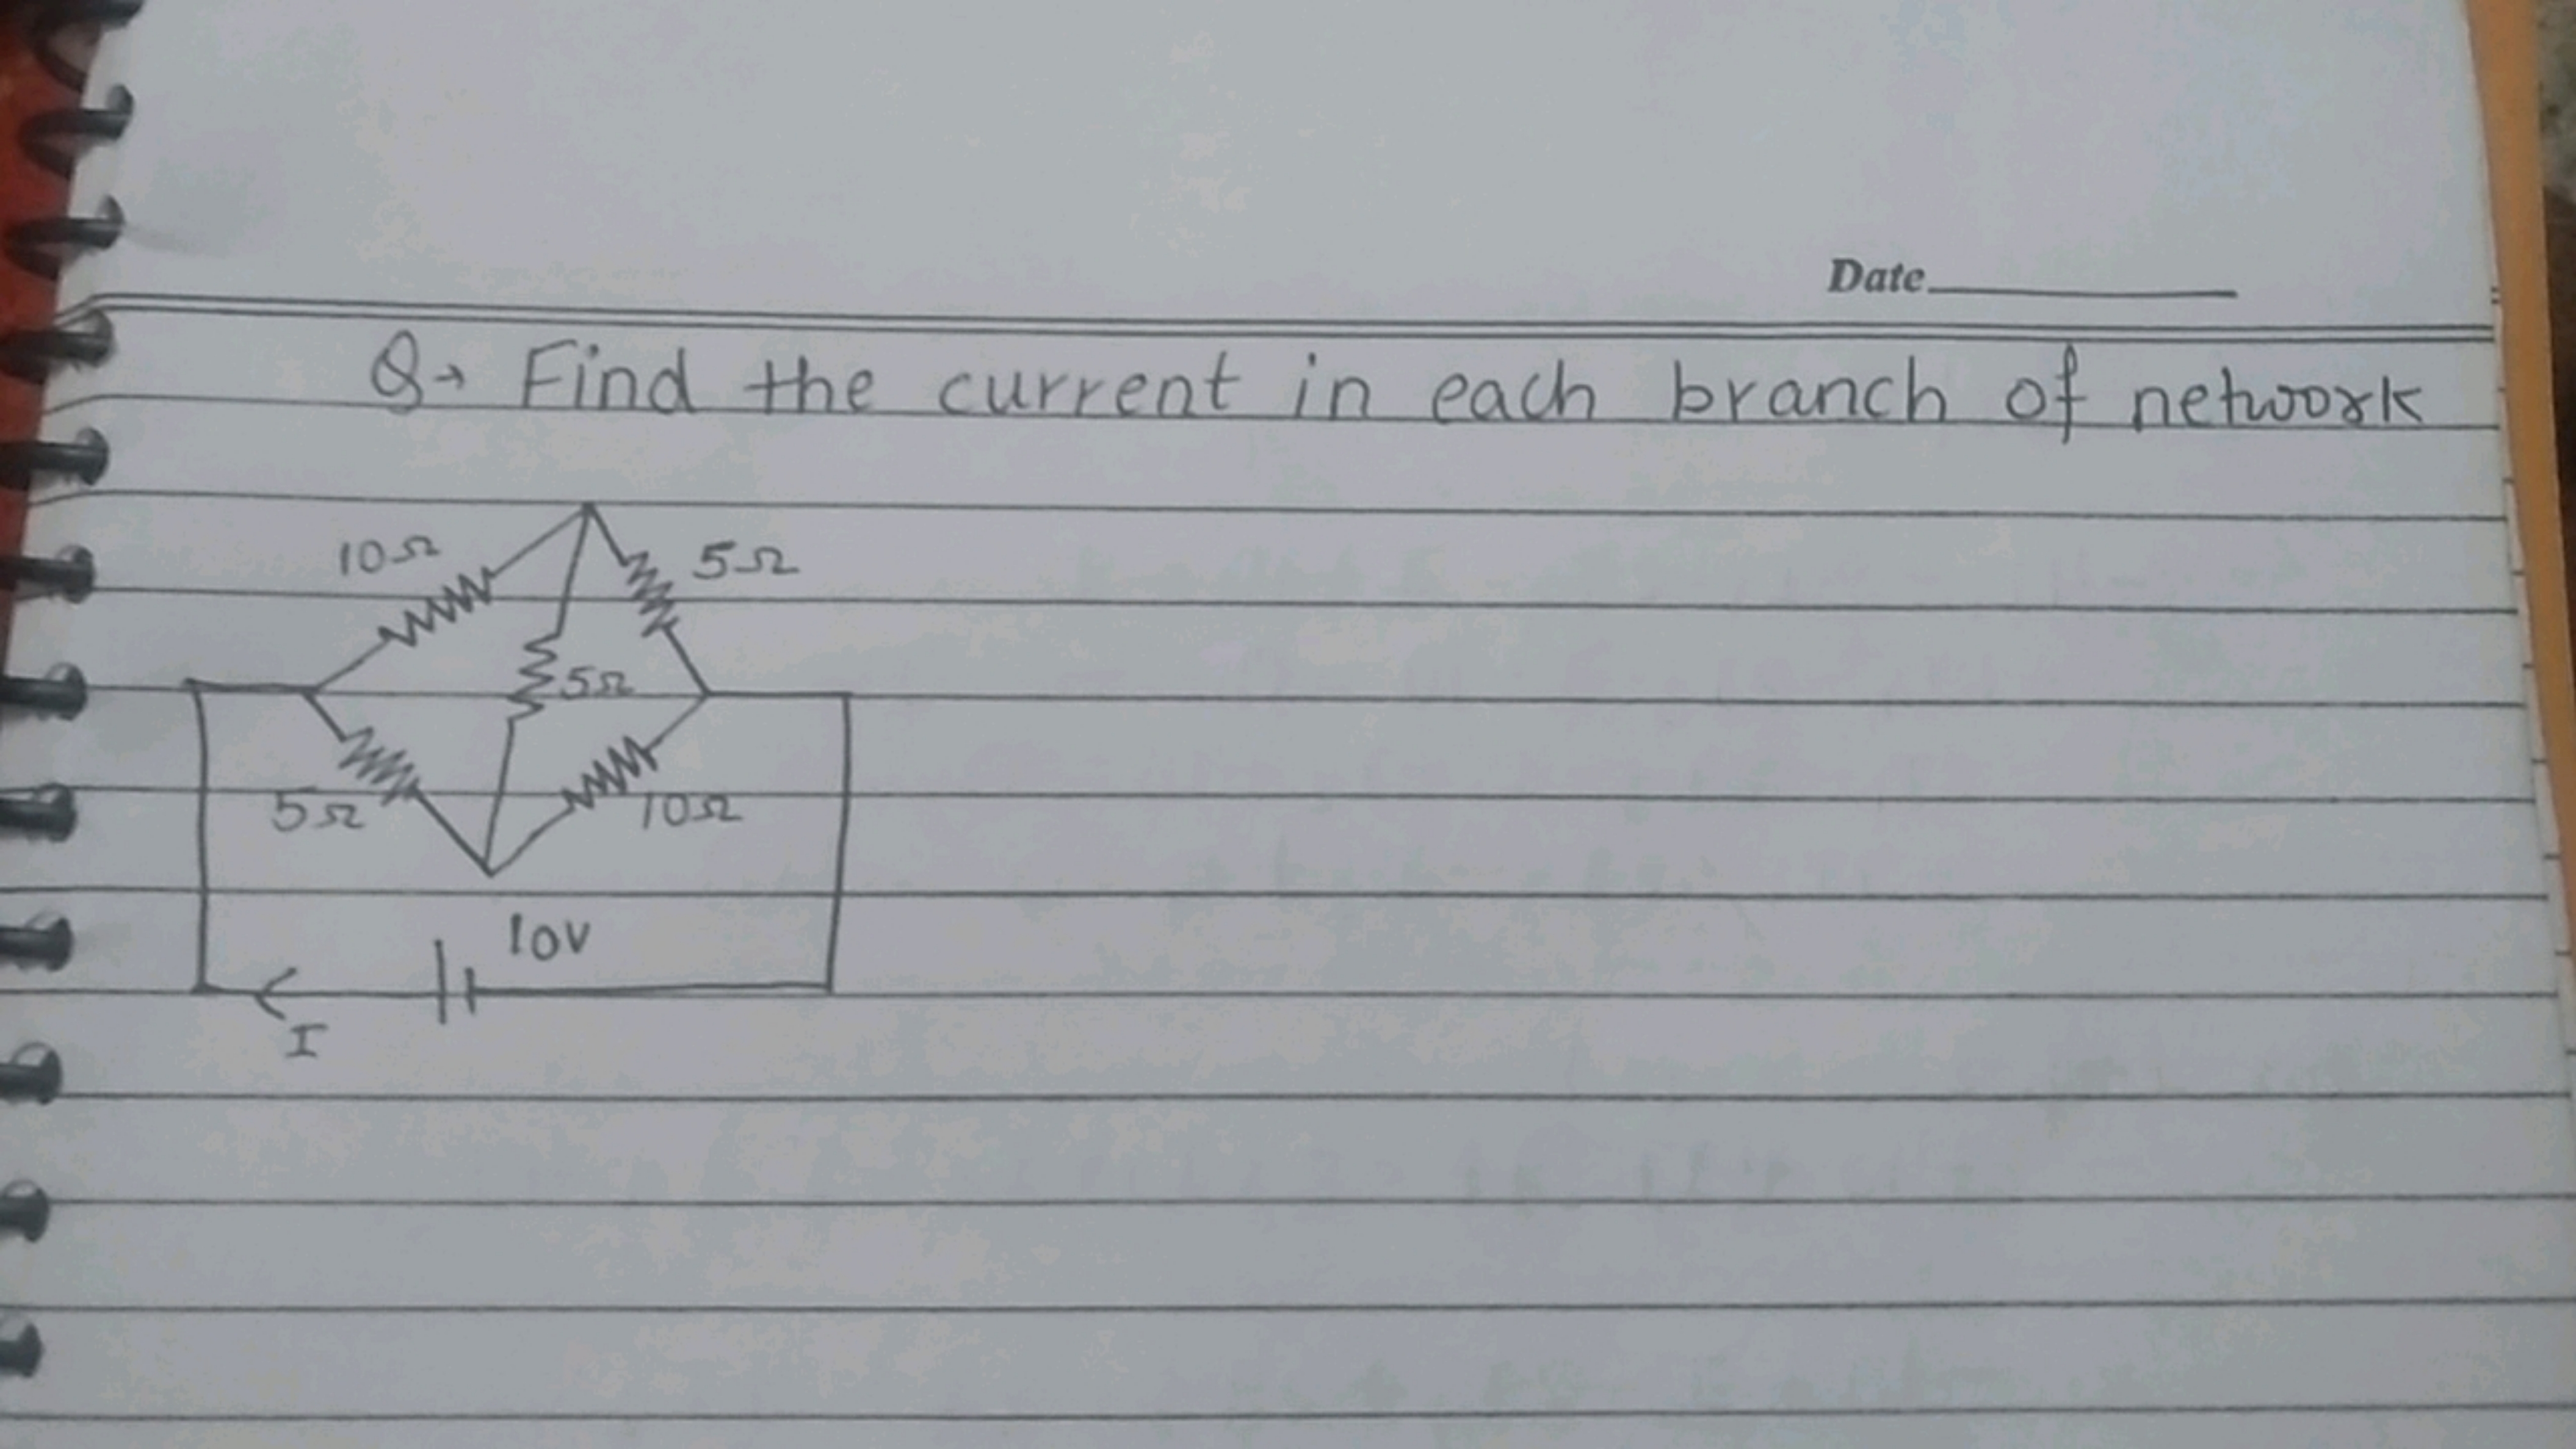 Date
Q→ Find the current in each branch of network
10Ω
5Ω
5Ω
5Ω
10Ω
10V
I